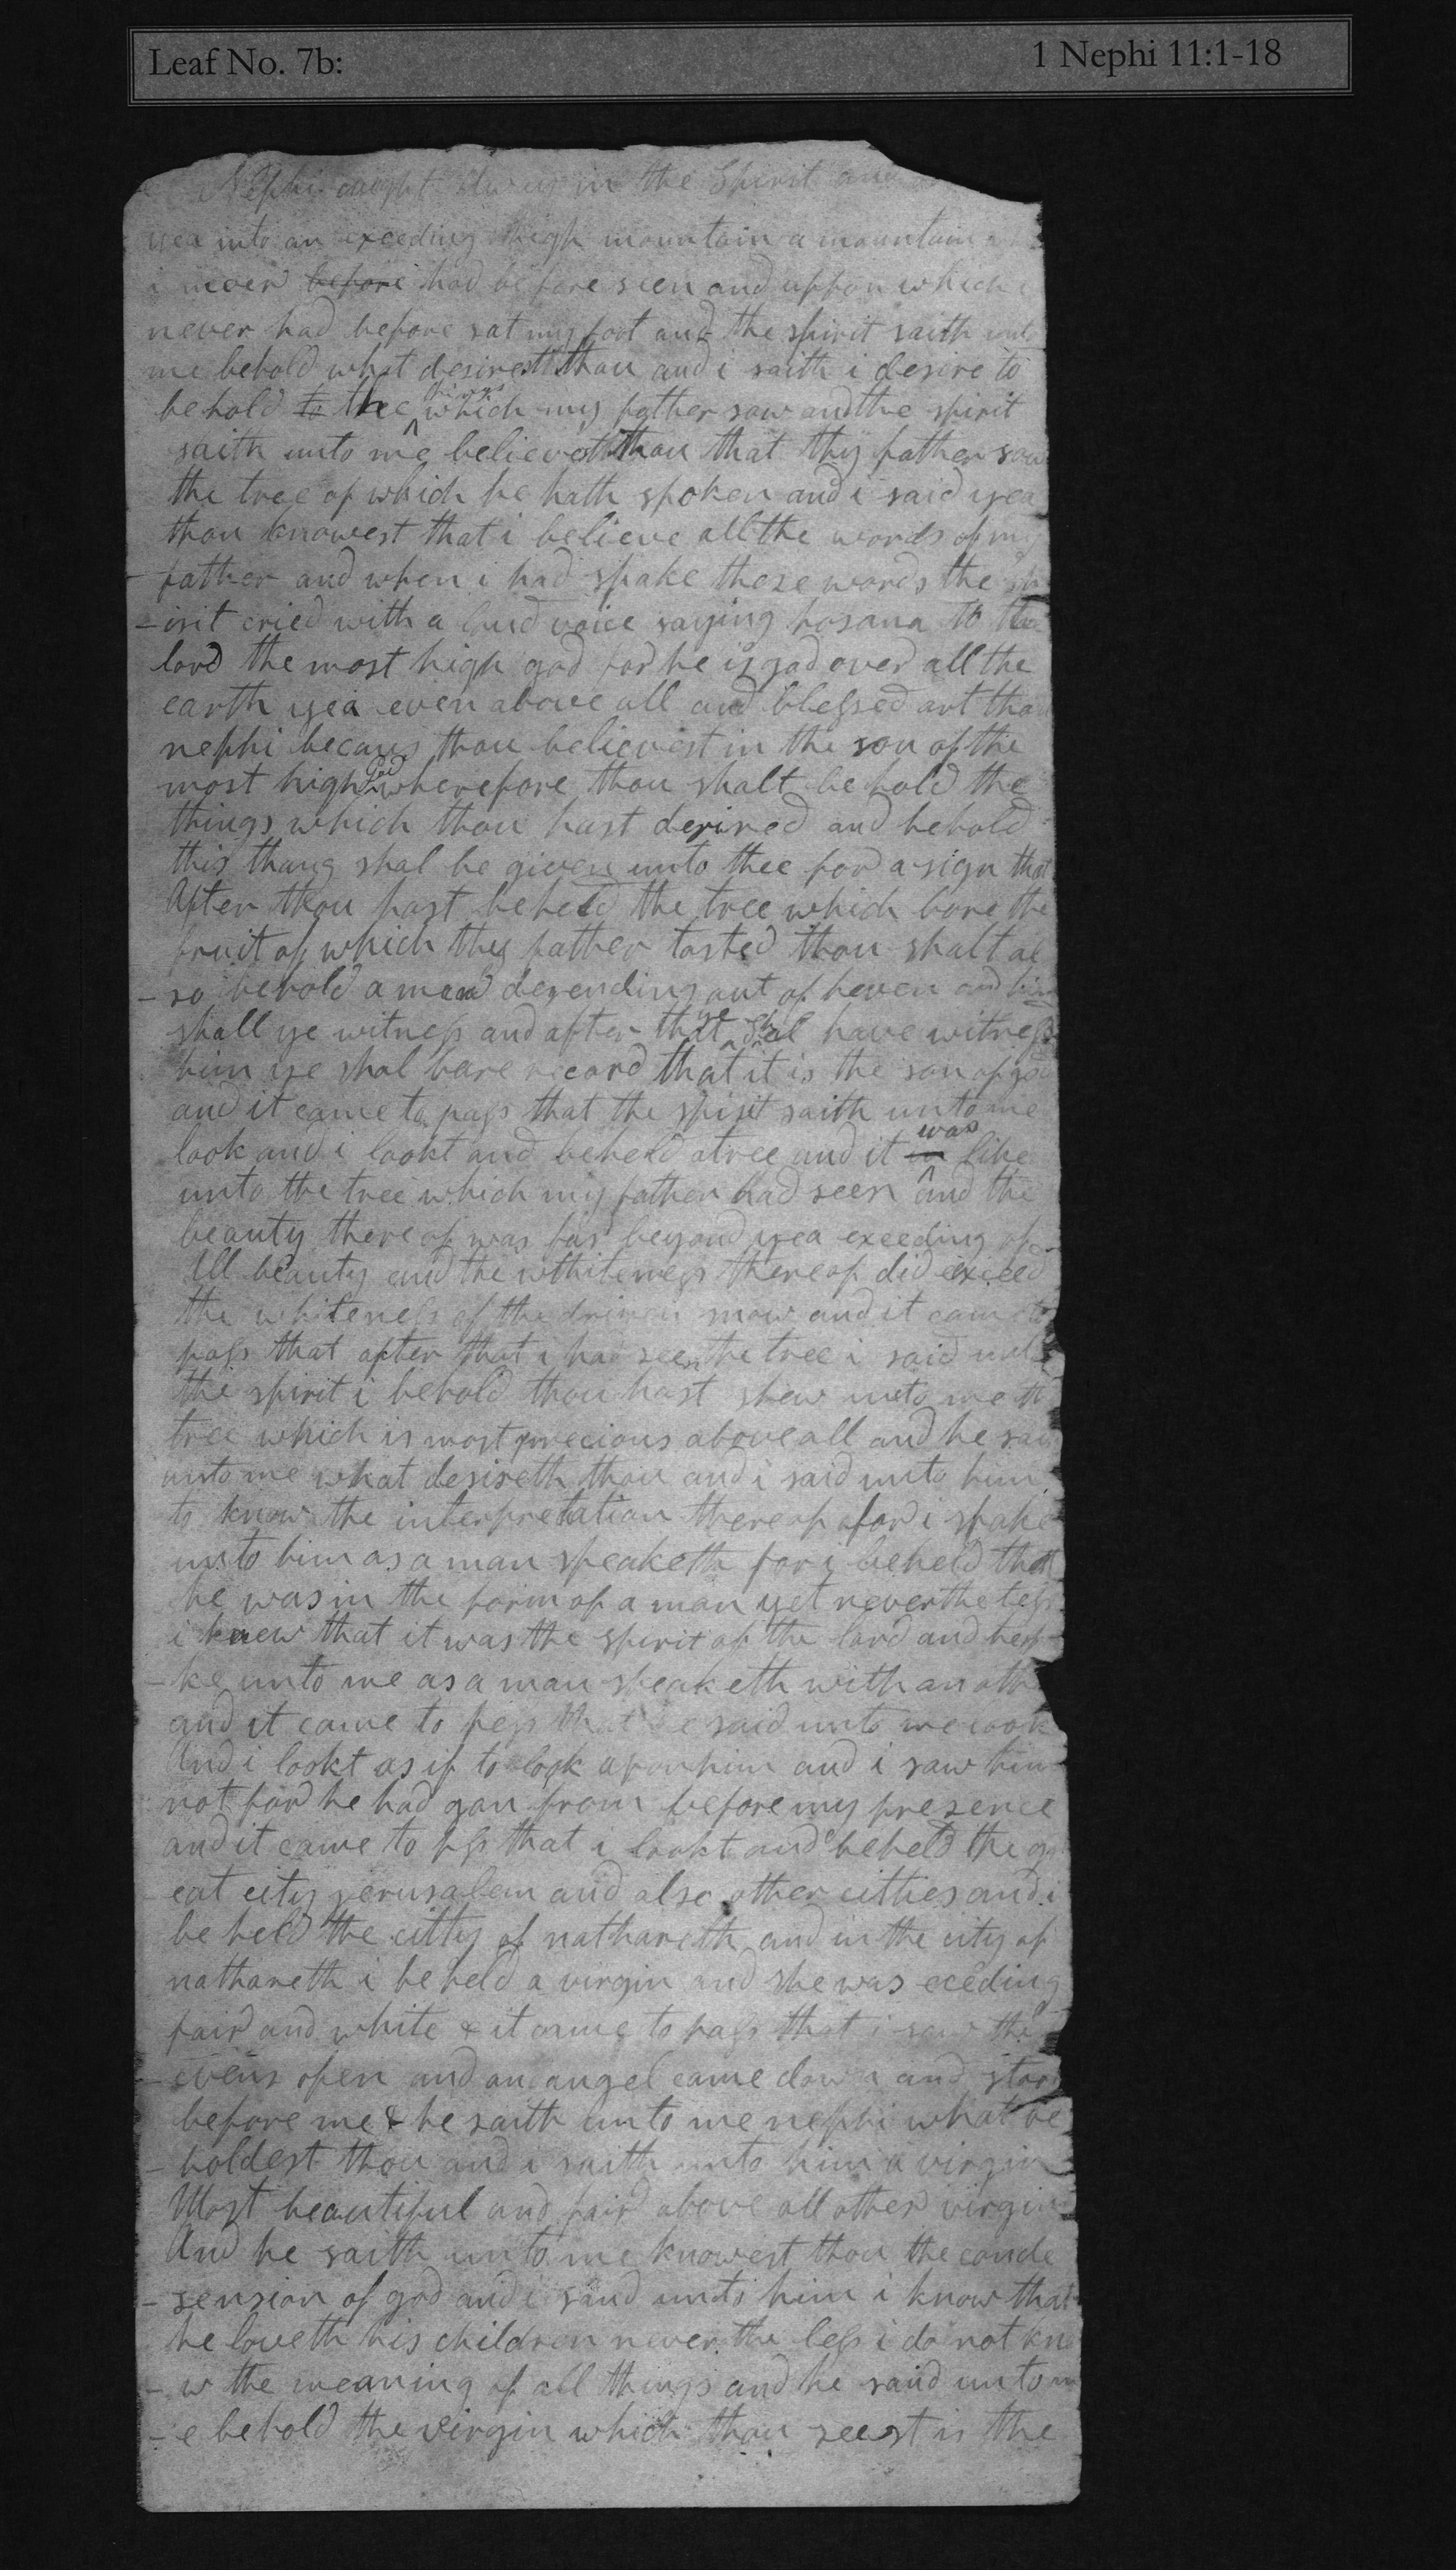 Leaf No. 7b: 1 Nephi 11:1-18
Nephi caught away in the Spirit and
yea into an exceeding high mountain a mountain
i never before had before seen and uppon which i
never had before sat my foot and the spirit saith unto
me behold what desirest thou and i saith i desire to
behold to the things which my father saw and the spirit
saith unto me believest thou that thy father saw
the tree of which he hath spoken and i said yea
thou knowest that i believe all the words of my
father and when i had spake these words the sp
-irit cried with a loud voice saying hosana to the
lord the most high god for he is god over all the
earth yea even above all and blessed art thou
nephi becaus thou believest in the son of the
most high God wherefore thou shalt behold the
things which thou hast desired and behold
this thang shal be given unto thee for a sign that
After thou hast beheld the tree which bore the
fruit of which they father tasted thou shalt al
-so behold a man desending out of heven and him
shall ye witness and after that ye shal have witness
him ye shal bare record that it is the son of god
and it came to pass that the spirit saith unto me
look and i lookt and beheld a tree and it was like
unto the tree which my father had seen and the
beauty there of was far beyond yea exeeding of
All beauty and the whiteness thereof did exceed
the whiteness of the driven snow and it came to
pass that after that i had seen the tree i said unto
the spirit i behold thou hast shew unto me th
tree which is most precious above all and he said
unto me what desireth thou and i said unto him
to know the interpretation thereof for i spake
unto him as a man speaketh for i beheld that
he was in the form of a man yet nevertheless
i knew that it was the spirit of the lord and he sp
-ke unto me as a man speaketh with an othe
and it came to pess that he said unto me look
And i lookt as if to look upon him and i saw him
not for he had gon from before my presence
and it came to pss that i lookt and beheld the gr
eat city jerusalem and also other citties and i
beheld the citty of nathareth and in the city of
nathareth i beheld a virgin and she was eceding
fair and white & it came to pass that i saw the
-evens open and an angel came down and stood
before me & he saith unto me nephi what be
-holdest thou and i saith unto him a virgin
Most beautiful and fair above all other virgins
And he saith unto me knowest thou the conde
-sension of god and i said unto him i know that
he loveth his children never the less i do not kno
-w the meaning of all things and he said unto m
-e behold the virgin which thou seest is the